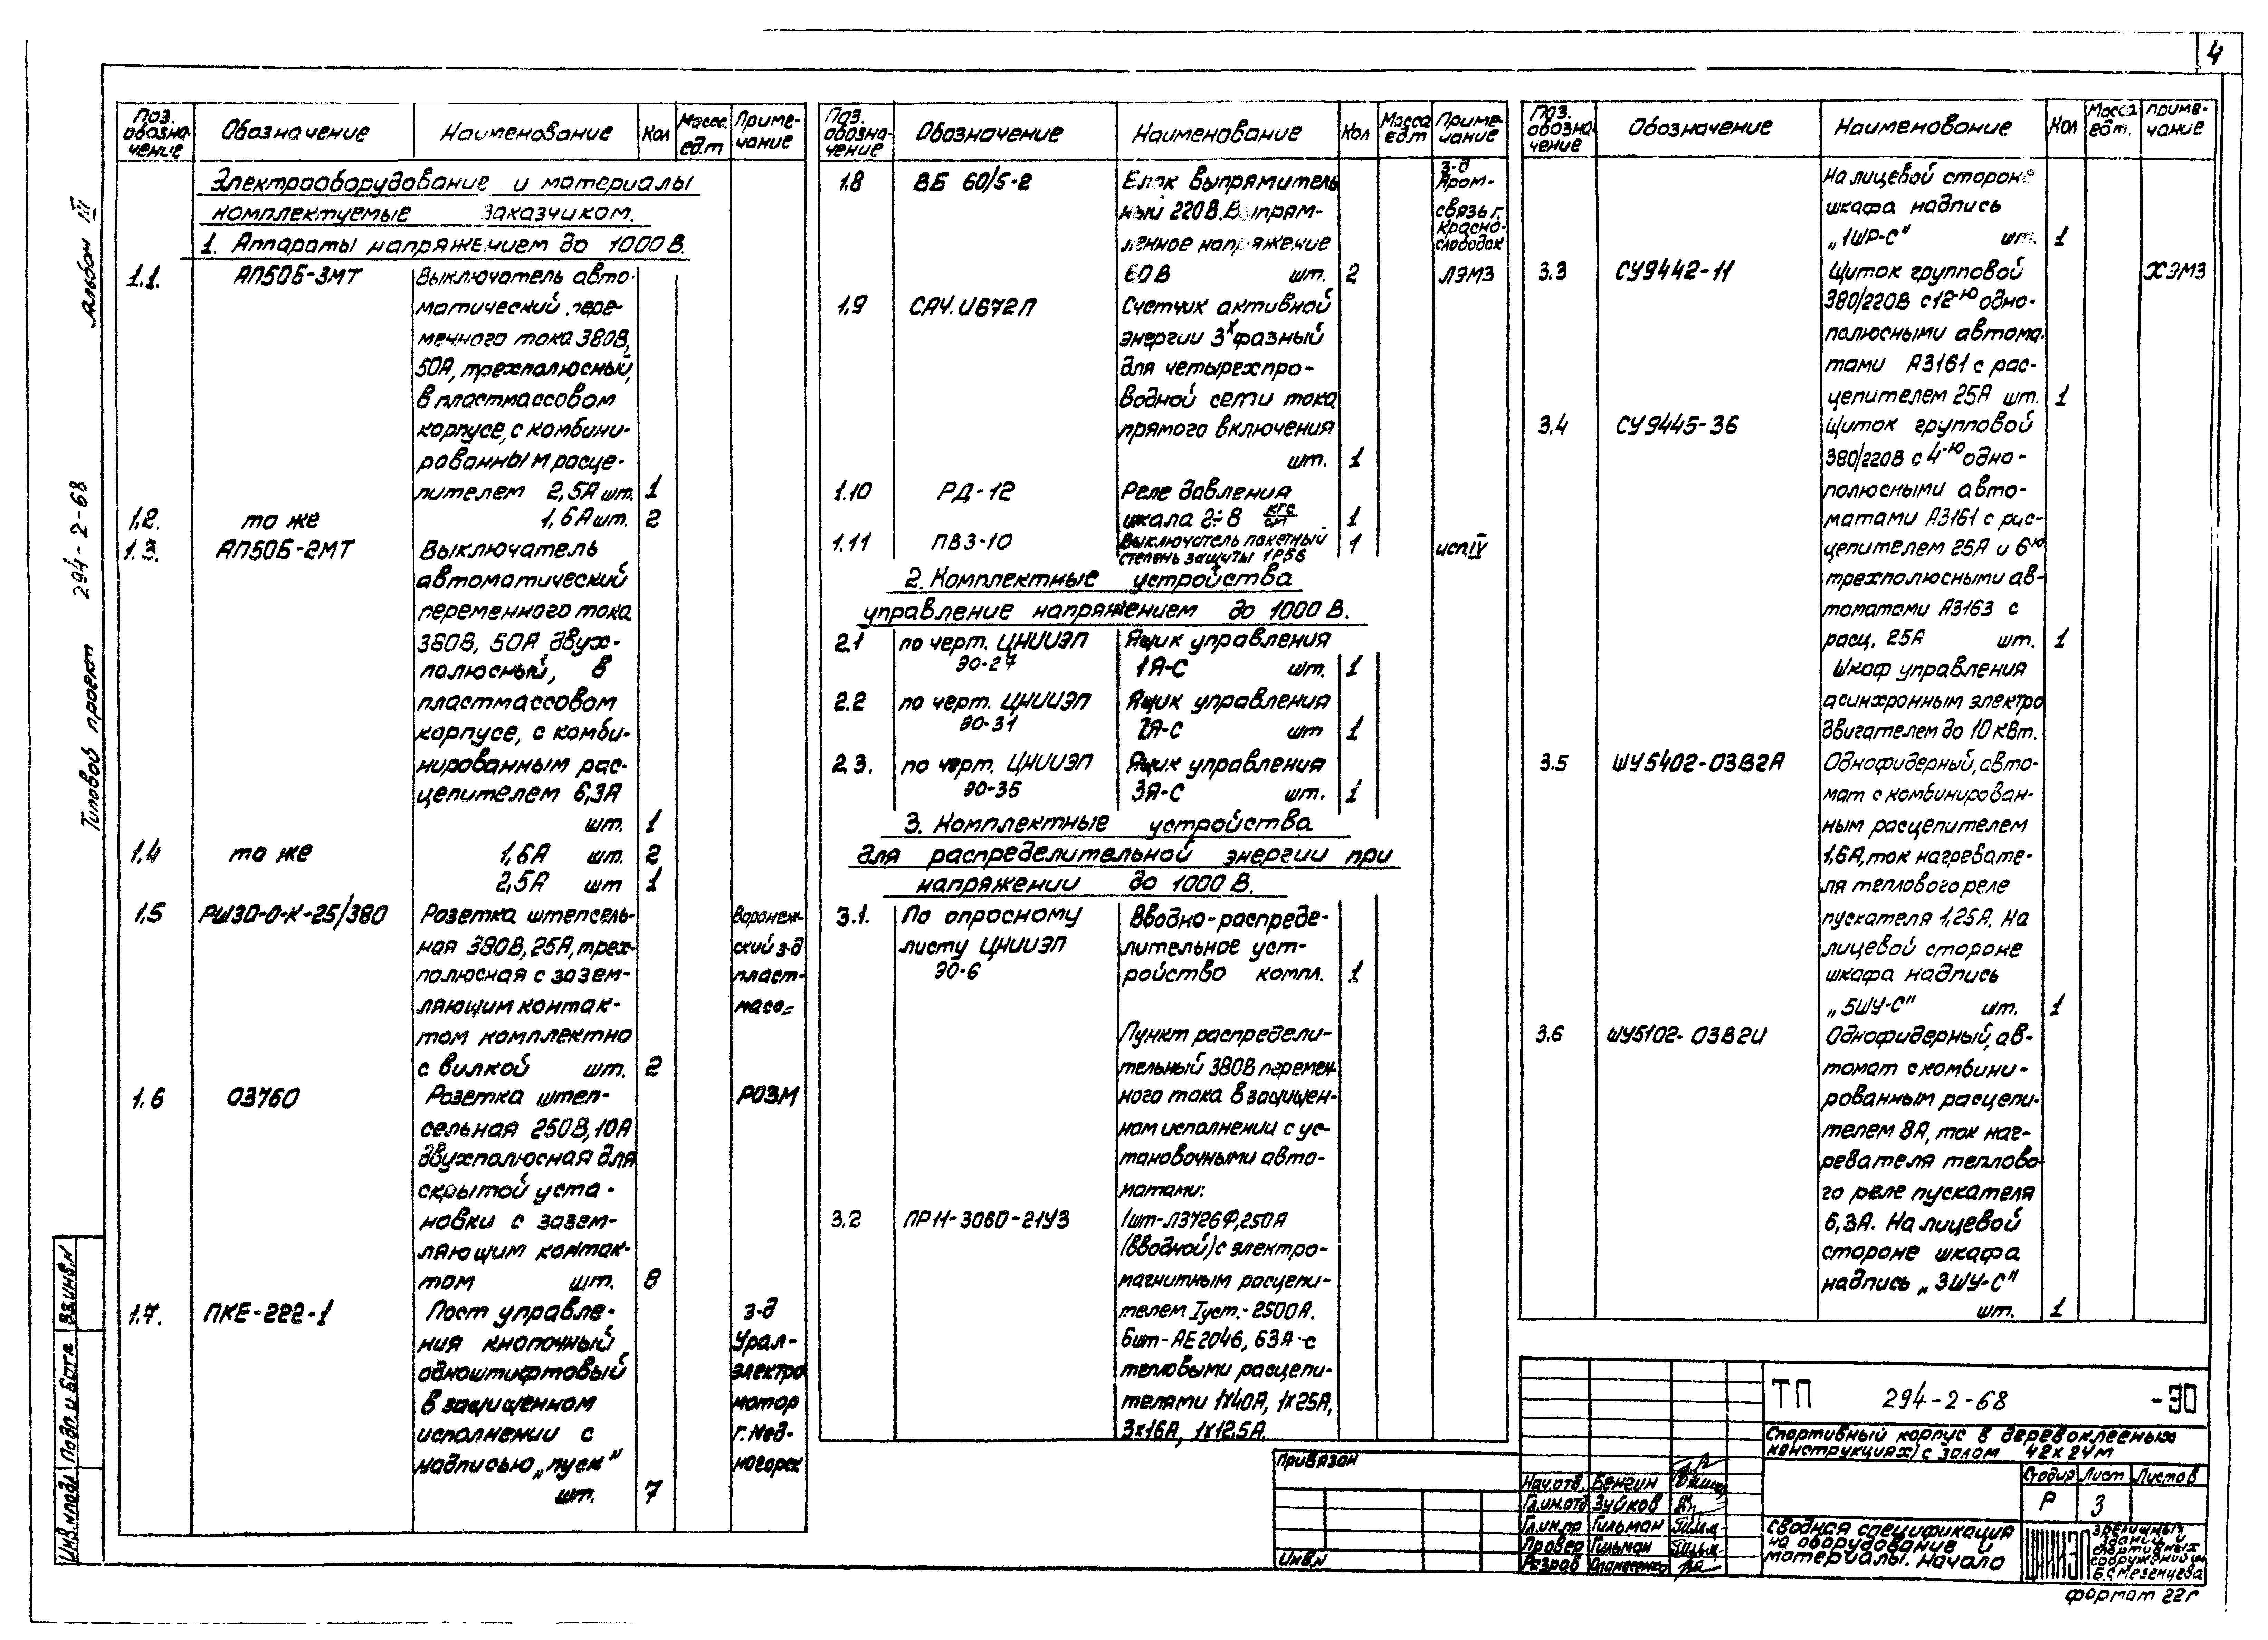 4
Альбом III
Типовой проект 294-2-68
Поз. обозначение Обозначение Наименование Кол Масса ед.т Примечание
Электрооборудование и материалы
комплектуемые заказчиком.
1. Аппараты напряжением до 1000 В.
1.1. АП50Б-3МТ Выключатель авто-
матический пере-
менного тока 380В,
50А, трехполюсный,
в пластмассовом
корпусе, с комбини-
рованным расце-
пителем 2,5А шт. 1
1.2. то же 1,6А шт. 2
1.3. АП50Б-2МТ Выключатель
автоматический
переменного тока
380В, 50А, двух-
полюсный, в
пластмассовом
корпусе, с комби-
нированным рас-
цепителем 6,3А
шт. 1
1.4 то же 1,6А шт. 2
2,5А шт 1
1.5 РШ30-0-К-25/380 Розетка штепсель- Воронеж-
ная 380В, 25А, трех- ский з-д
полюсная с зазем- пласт-
ляющим контак- масс.
том комплектно
с вилкой шт. 2
1.6 03760 Розетка штеп- РОЗМ
сельная 250В, 10А
двухполюсная для
скрытой уста-
новки с зазем-
ляющим контак-
том шт. 8
1.7. ПКЕ-222-1 Пост управле- з-д
ния кнопочный Урал-
одноштифтовый электро
в защищенном мотор
исполнении с г. Мед-
надписью „пуск" ногорск
шт. 7
Поз. обозначение Обозначение Наименование Кол Масса ед.т Примечание
1.8 ВБ 60/5-2 Блок выпрямитель з-д Пром-
ный 220В. Выпрям- связь г.
ленное напряжение Красно-
слободск
60В шт. 2 ЛЭМЗ
1.9 САЧ. И672П Счетчик активной
энергии 3х фазный
для четырехпро-
водной сети тока
прямого включения
шт. 1
1.10 РД-12 Реле давления
шкала 2÷8 кгс/см 1
1.11 ПВ3-10 Выключатель пакетный 1 исп IV
степень защиты 1Р56
2. Комплектные устройства
управление напряжением до 1000 В.
2.1 по черт. ЦНИИЭП Ящик управления
ЭО-27 1Я-С шт. 1
2.2 по черт. ЦНИИЭП Ящик управления
ЭО-31 2Я-С шт 1
2.3. по черт. ЦНИИЭП Ящик управления
ЭО-35 3Я-С шт. 1
3. Комплектные устройства
для распределительной энергии при
напряжении до 1000 В.
3.1. По опросному Вводно-распреде-
листу ЦНИИЭП лительное уст-
ЭО-6 ройство компл. 1
Пункт распредели-
тельный 380В перемен-
ного тока в защищен-
ном исполнении с ус-
тановочными авто-
матами:
3.2 ПР11-3060-21У3 1шт-А3726Ф, 250А
(вводной) с электро-
магнитным расцепи-
телем Iуст.-2500А.
6шт-АЕ2046, 63А-с
тепловыми расцепи-
телями 1х40А, 1х25А,
3х16А, 1х12.5А.
Поз. обозначение Обозначение Наименование Кол Масса ед.т. Примечание
На лицевой стороне
шкафа надпись
„1ШР-С" шт. 1
3.3 СУ9442-11 Щиток групповой ХЭМЗ
380/220В с 12-ю одно-
полюсными автома-
тами А3161 с рас-
цепителем 25А шт. 1
3.4 СУ9445-36 Щиток групповой
380/220В с 4-ю одно-
полюсными авто-
матами А3161 с рас-
цепителем 25А и 6ю
трехполюсными ав-
томатами А3163 с
расц. 25А шт. 1
Шкаф управления
асинхронным электро
двигателем до 10 кВт.
3.5 ШУ5402-03В2А Однофидерный, авто-
мат с комбинирован-
ным расцепителем
1,6А, ток нагревате-
ля теплового реле
пускателя 1,25А. На
лицевой стороне
шкафа надпись
„5ШУ-С" шт. 1
3.6 ШУ5102-03В2И Однофидерный, ав-
томат с комбини-
рованным расцепи-
телем 8А, ток наг-
ревателя теплово-
го реле пускателя
6,3А. На лицевой
стороне шкафа
надпись „3ШУ-С"
шт. 1
Взинв.N
Подп. и дата
Инв.Nподл
Привязан
Инв.N
ТП 294-2-68 -ЭО
Спортивный корпус в деревоклееных
конструкциях) с залом 42х24м
Стадия Лист Листов
Р 3
Нач.отд. Бенгин
Гл.ин.отд Зуйков
Гл.ин.пр Гильман
Провер Гильман
Разраб
Сводная спецификация
на оборудование и
материалы. Начало
ЦНИИЭП зрелищных
зданий и
спортивных
сооружений им
Б.С. Мезенцева
Формат 22г